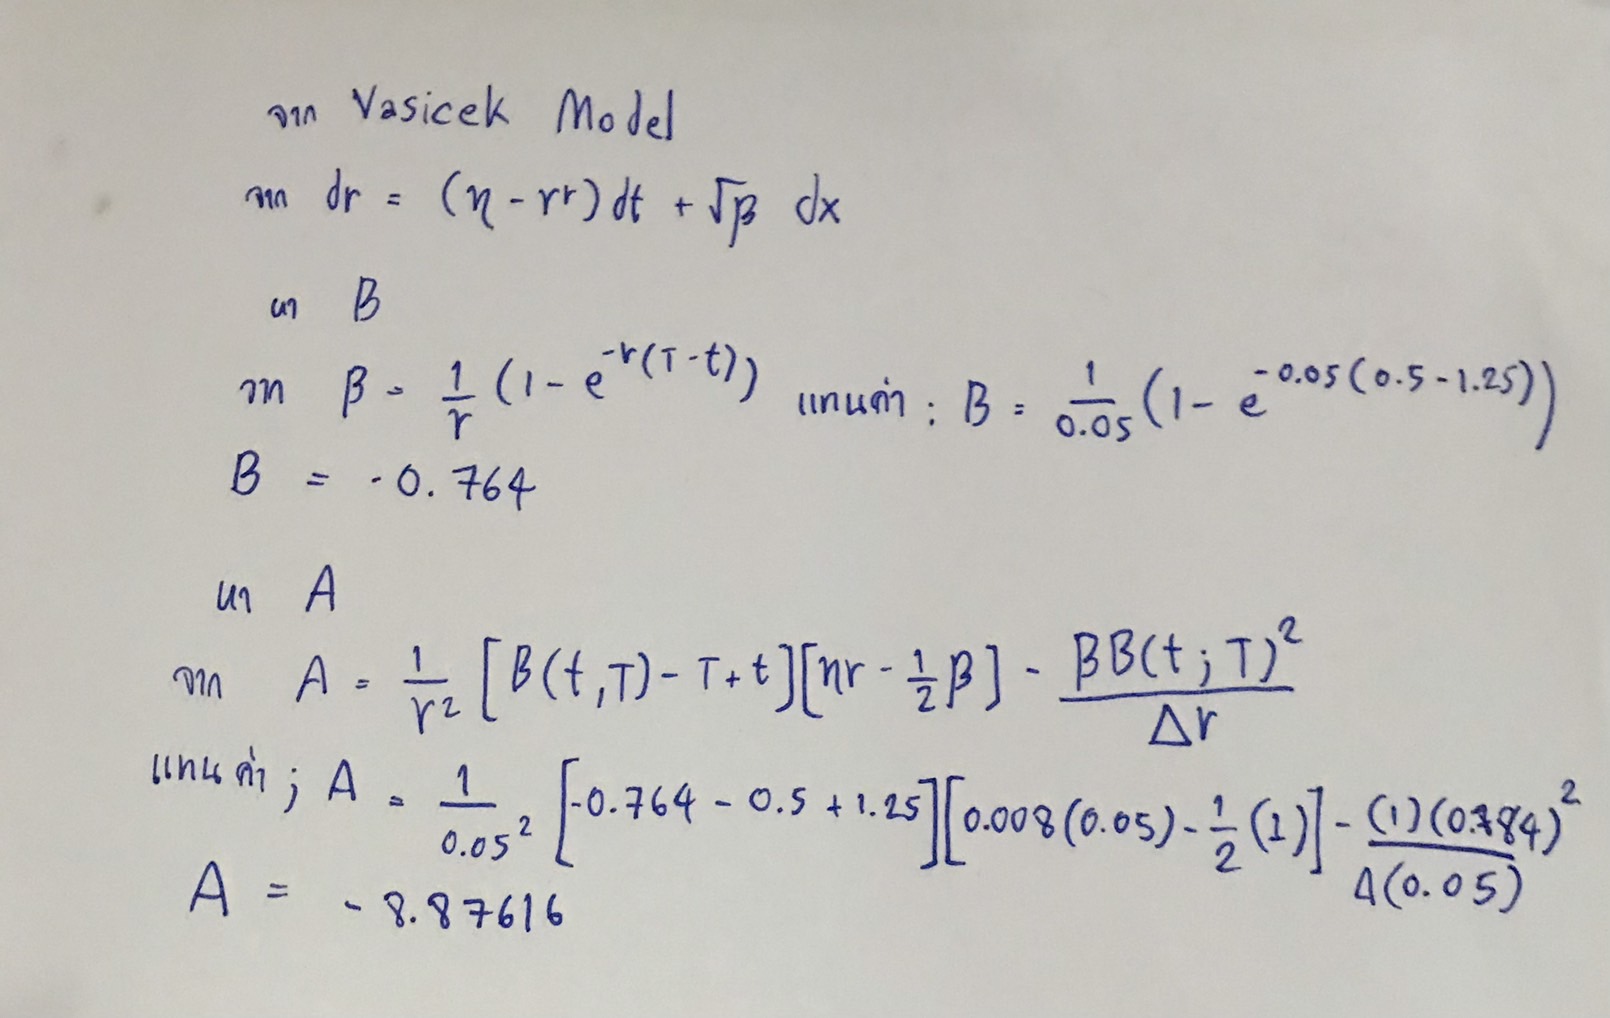 จาก Vasicek Model
จาก dr = (η - rr) dt + √β dx
หา B
จาก β = 1/r (1 - e^-r(T-t)) แทนค่า : B = 1/0.05 (1 - e^-0.05(0.5-1.25))
B = -0.764
หา A
จาก A = 1/r² [B(t,T) - T + t][ηr - 1/2 β] - βB(t;T)²/Δr
แทนค่า ; A = 1/0.05² [-0.764 - 0.5 + 1.25][0.008(0.05) - 1/2 (1)] - (1)(0.784)²/Δ(0.05)
A = -8.87616